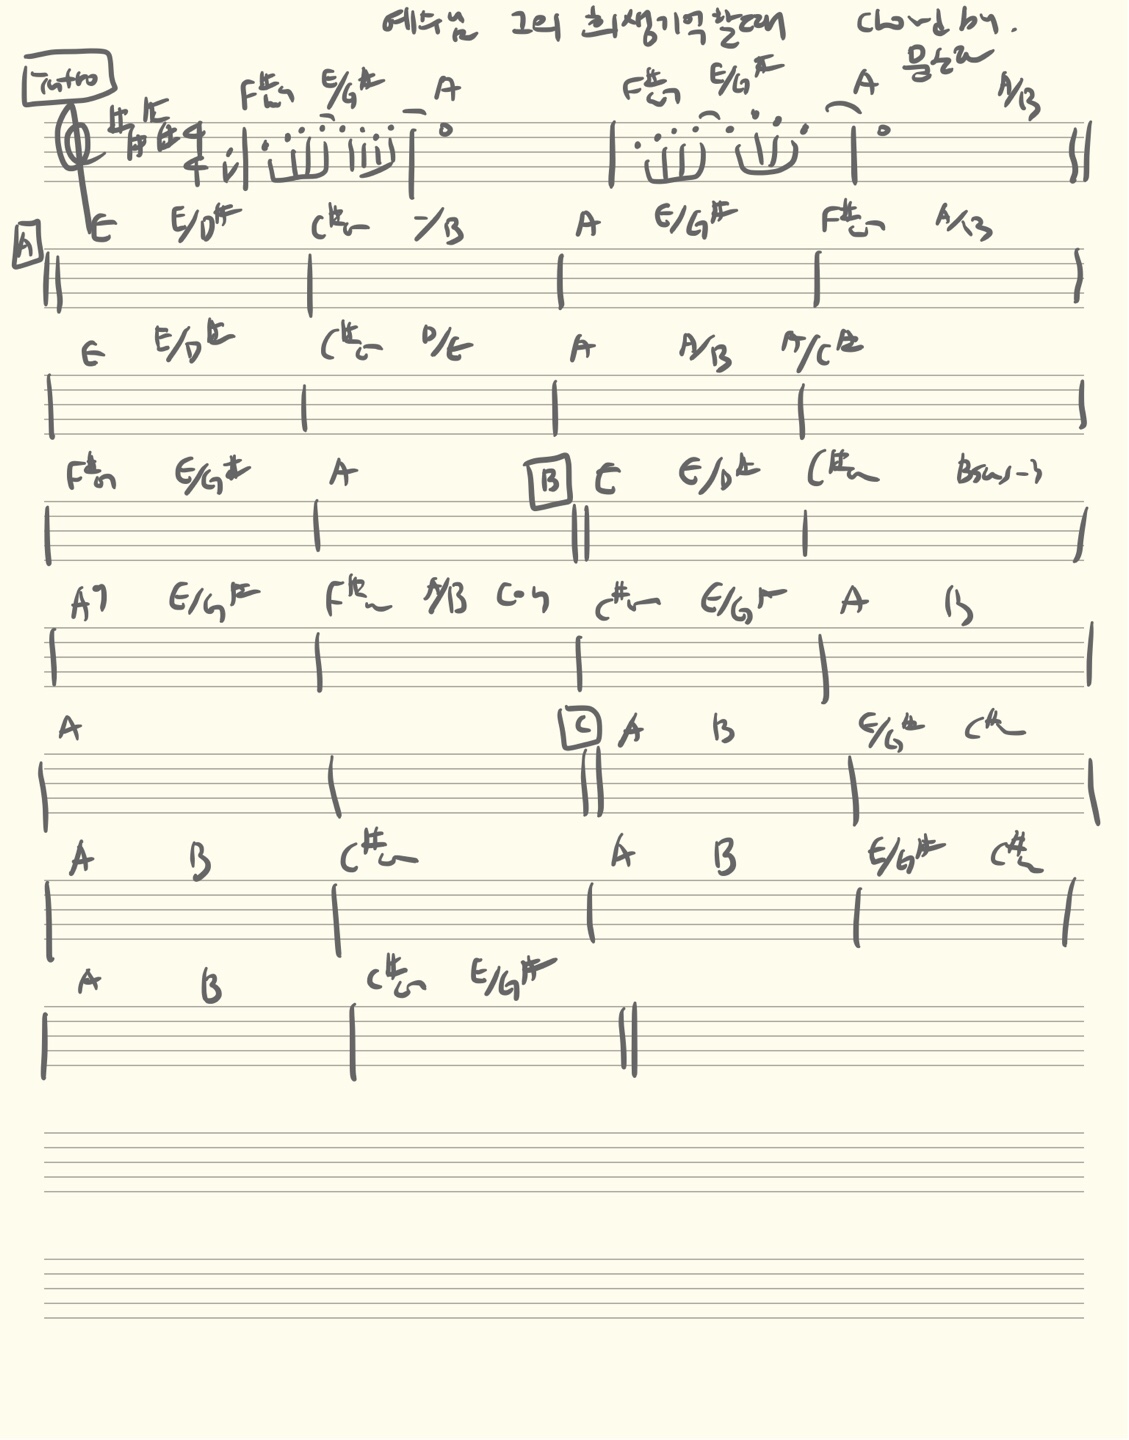 예수님 그의 희생기억할때 Chord by.
Intro F#m E/G# A F#m E/G# A A/B
4
4
A E E/D# C#m -/B A E/G# F#m A/B
E E/D# C#m D/E A A/B A/C#
F#m E/G# A B E E/D# C#m Bsus-3
A9 E/G# F#m A/B C#m E/G# A B
A C A B E/G# C#m
A B C#m A B E/G# C#m
A B C#m E/G#